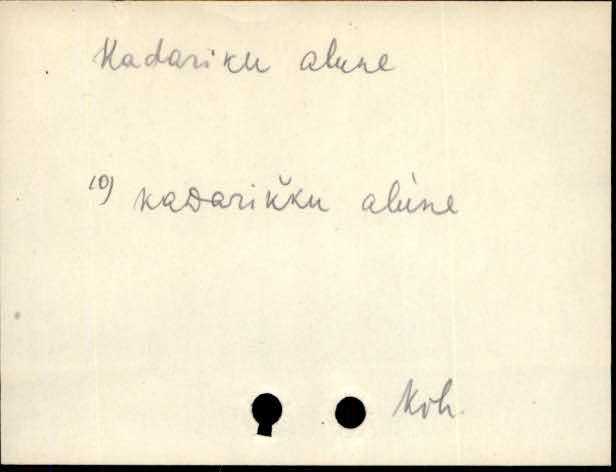 Kadariku alune
10) kaDarik̆ku alùne
Koh.